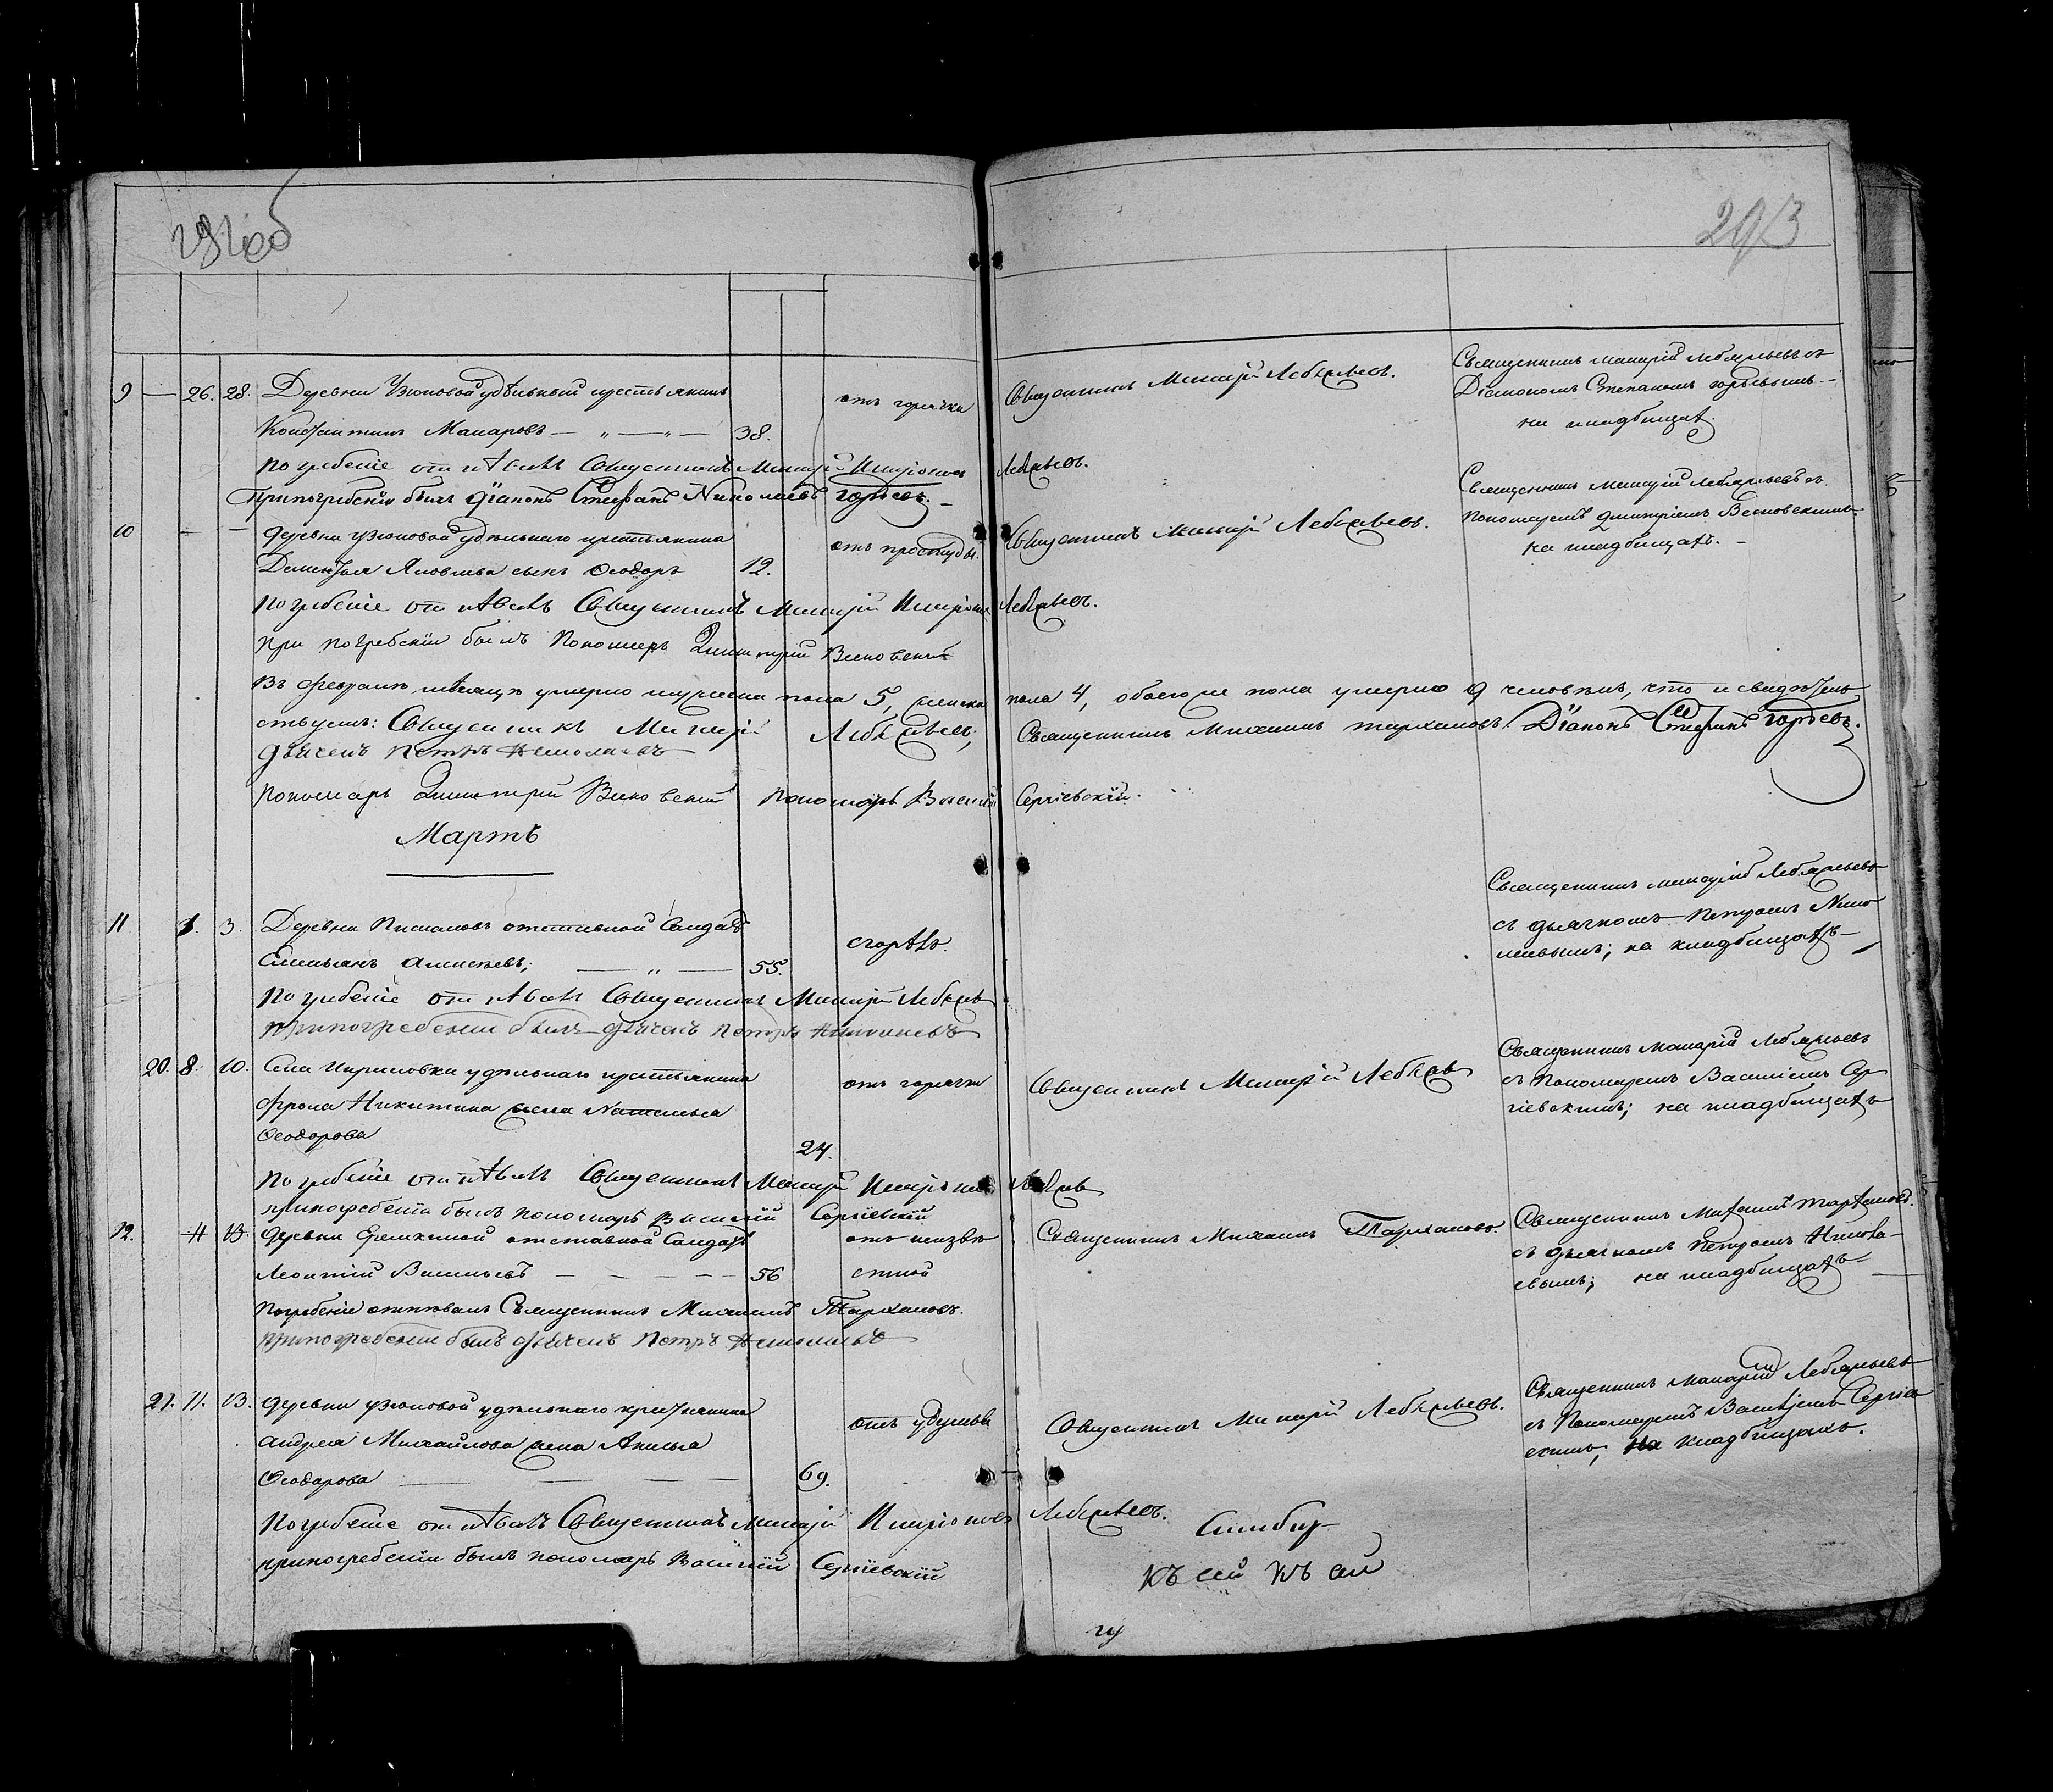 292 об
293
9 — 26. 28. Деревни Узюковой удѣльный крестьянинъ
Константинъ Макаровъ — „ — „ — 38.
отъ горячки
Священникъ Макарій Лебяжьевъ.
Священникъ Макарій Лебяжьевъ съ
Діакономъ Стефаномъ
на кладбищѣ.
Погребеніе отпѣвалъ Священникъ Макарій Лебяжьевъ.
При погребеніи былъ Діаконъ Стефанъ Николаевъ
10 — — деревни Узюковой удѣльнаго крестьянина
Яковлева сынъ Ѳеодоръ 12.
отъ простуды.
Священникъ Макарій Лебяжьевъ.
Священникъ Макарій Лебяжьевъ съ
Пономаремъ Димитріемъ
на кладбищѣ. —
Погребеніе отпѣвалъ Священникъ Макарій Лебяжьевъ.
При погребеніи былъ Пономарь Димитрій
Въ Февралѣ мѣсяцѣ умерло мужеска пола 5, женска пола 4, обоего же пола умерло 9 человѣкъ, что и свидѣтель
ствуемъ: Священникъ Макарій Лебяжьевъ, Священникъ Михаилъ Тархановъ. Діаконъ Стефанъ
дьячекъ Петръ Николаевъ
Пономарь Димитрій Пономарь Василій Сергіевскій.
Мартъ
11 1. 3. Деревни отставной Солдатъ
Емельянъ Алексѣевъ; — „ — 55.
сгорѣлъ.
Священникъ Макарій Лебяжьевъ
съ дьячкомъ Петромъ Нико
лаевымъ; на кладбищѣ —
Погребеніе отпѣвалъ Священникъ Макарій Лебяжьевъ
При погребеніи былъ дьячекъ Петръ Николаевъ
20. 8. 10. Села Кириловки удѣльнаго крестьянина
Фрола Никитина жена Наталья
Ѳеодорова 24.
отъ горячки
Священникъ Макарій Лебяжьевъ
Священникъ Макарій Лебяжьевъ
съ Пономаремъ Василіемъ Сер
гіевскимъ; на кладбищѣ
Погребеніе отпѣвалъ Священникъ Макарій Лебяжьевъ
при погребеніи былъ Пономарь Василій Сергіевскій
12. 11 13. деревни Еремкиной отставной Солдатъ
Леонтій Васильевъ — — — — 56
отъ неизвѣ
стной
Священникъ Михаилъ Тархановъ.
Священникъ Михаилъ Тархановъ.
съ дьячкомъ Петромъ Никола-
евымъ; на кладбищѣ —
Погребеніе отпѣвалъ Священникъ Михаилъ Тархановъ.
При погребеніи былъ дьячекъ Петръ Николаевъ
21. 11. 13. деревни Узюковой удѣльнаго крестьянина
Андрея Михайлова жена Акилина
Ѳеодорова — — — 69.
отъ удушья
Священникъ Макарій Лебяжьевъ.
Священникъ Макарій Лебяжьевъ
съ Пономаремъ Василіемъ Сергіев
скимъ, на кладбищахъ.
Погребеніе отпѣвалъ Священникъ Макарій Лебяжьевъ.
при погребеніи былъ пономарь Василій Сергіевскій
Симбир
къ сей къ сей